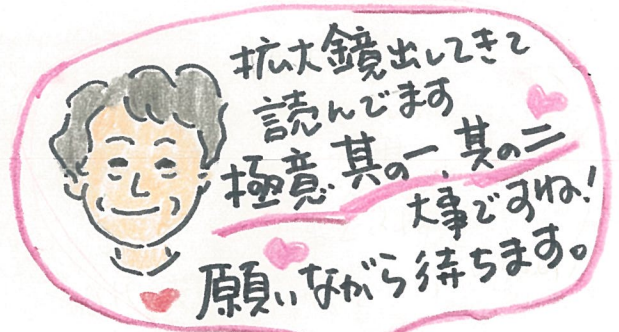 拡大鏡出してきて
読んでます
極意其の一、其の二
大事ですね!
願いながら待ちます。